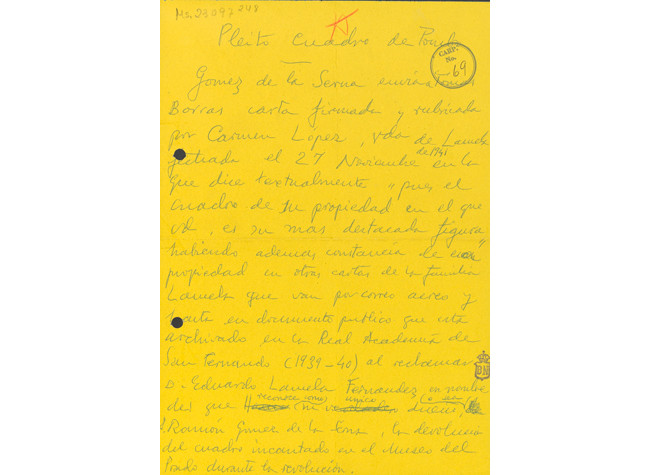 Ms 23097 248
Pleito cuadro de Pombo
CARP.
No.
69
Gomez de la Serna envia a Tomas
Borras carta firmada y rubricada
por Carmen Lopez, vda de Lamela
de 1941
fechada el 27 Noviembre en la
que dice textualmente "pues el
cuadro de su propiedad en el que
vd, es su mas destacada figura"
habiendo ademas constancia de esa
propiedad en otras cartas de la familia
Lamela que van por correo aereo y
en documento publico que esta
archivado en la Real Academia de
San Fernando (1939-40) al reclamar
D. Eduardo Lamela Fernandez en nombre
reconoce como unico (o sea
del que su dueño,
D. Ramon Gomez de la Serna, la devolucion
del cuadro incautado en el Museo del
Prado durante la revolución.